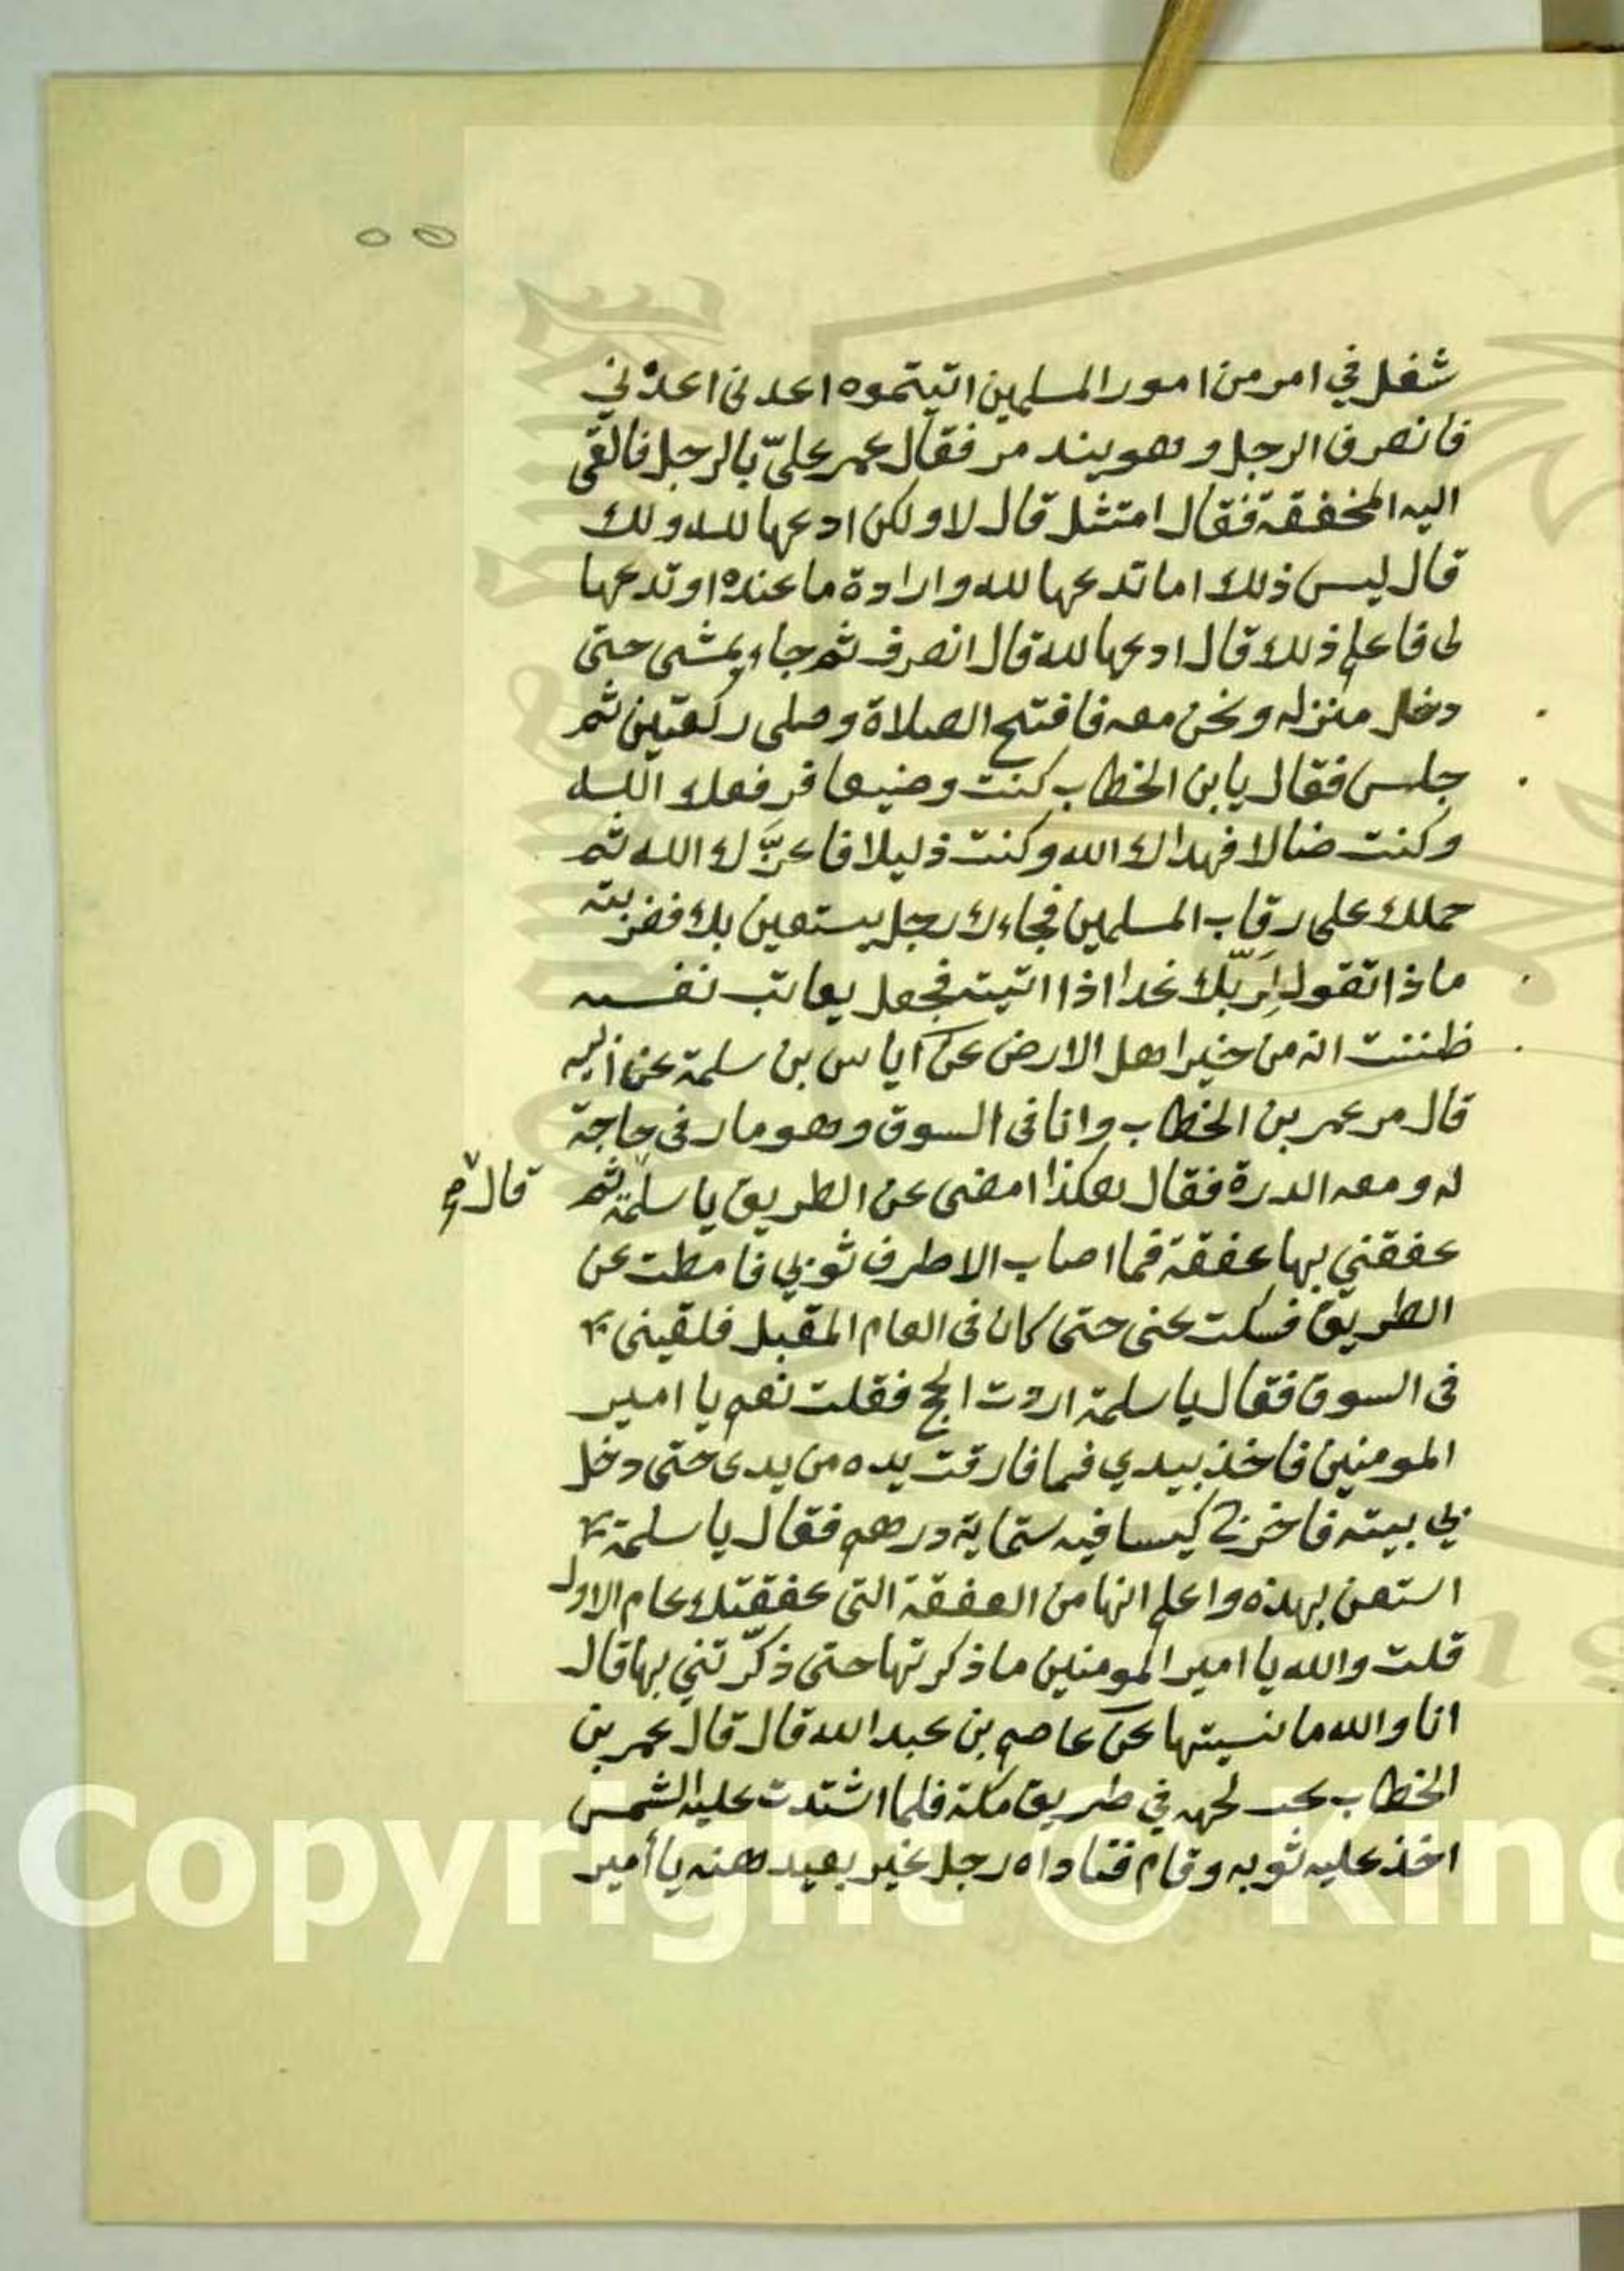 ٥٥
شغل في امر من امور المسلمين اتيتموه اعدني اعدني
فانصرف الرجل وهو يتذمر فقال عمر عليّ بالرجل فالقى
اليه المخفقة فقال امتثل قال لا ولكن ادعها لله ولك
قال ليس ذلك اما تدعها لله وارادة ما عنده او تدعها
لي فاعلم ذلك قال ادعها لله قال انصرف ثم جاء يمشي حتى
دخل منزله ونحن معه فافتتح الصلاة وصلى ركعتين ثم
جلس فقال يا بن الخطاب كنت وضيعا فرفعك الله
وكنت ضالا فهداك الله وكنت ذليلا فاعزّك الله ثم
حملك على رقاب المسلمين فجاءك رجل يستعين بك فضربته
ماذا تقول لِرَبّك غدا اذا اتيته فجعل يعاتب نفسه
ظننت انه من خير اهل الارض عن اياس بن سلمة عن ابيه
قال مر عمر بن الخطاب وانا في السوق وهو مار في حاجة
له ومعه الدرة فقال هكذا امض عن الطريق يا سلمة ثم قال
عفقني بها عفقة فما اصاب الا طرف ثوبي فامطت عن
الطريق فسكت عني حتى كان في العام المقبل فلقيني
في السوق فقال يا سلمة اردت الحج فقلت نعم يا امير
المومنين فاخذ بيدي فما فارقت يده من يدي حتى دخل
بي بيته فاخرج كيسا فيه ستماية درهم فقال يا سلمة
استعن بهذه واعلم انها من العفقة التي عفقتك عام الاول
قلت والله يا امير المومنين ما ذكرتها حتى ذكّرتني بها قال
انا والله ما نسيتها عن عاصم بن عبد الله قال قال عمر بن
الخطاب في طريق مكة فلما اشتدت عليه الشمس
اخذ عليه ثوبه وقام فناداه رجل غير بعيد منه يا أمير
Copyright © King